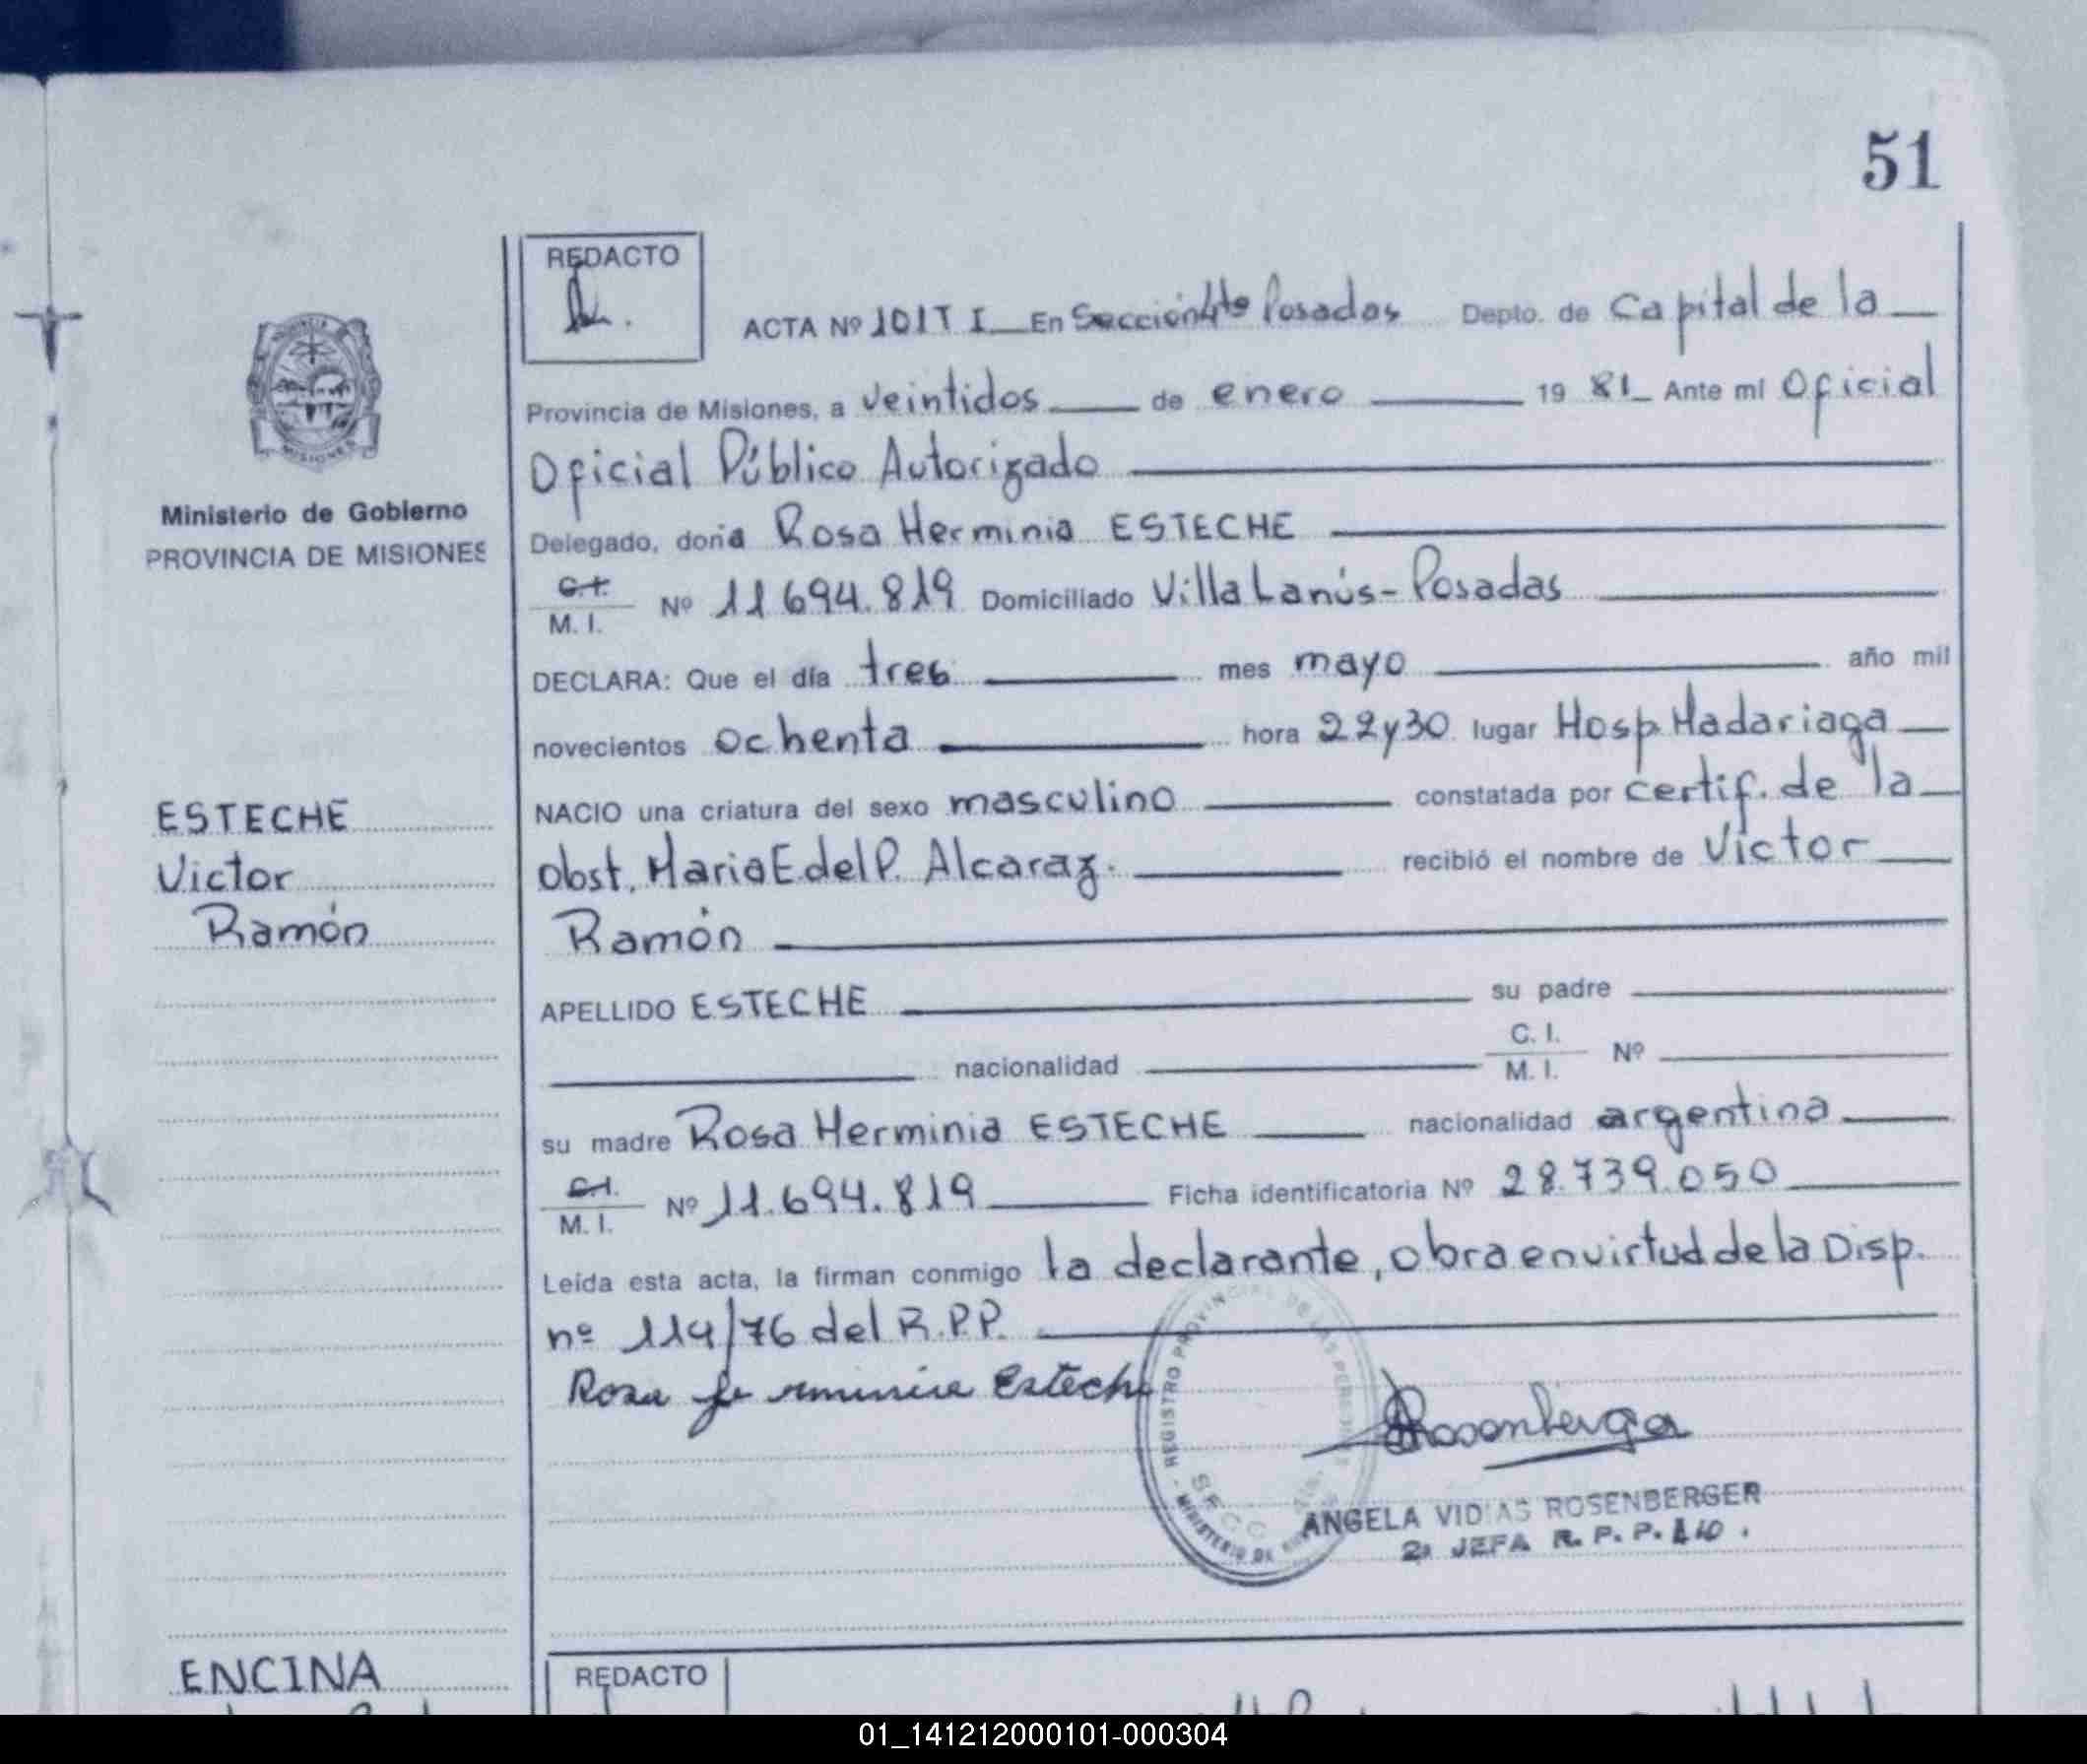 51
REDACTO
ACTA Nº 101 T I En Sección 4ta Posadas Depto. de Capital de la
Provincia de Misiones, a veintidos de enero 19 81 Ante mí Oficial
Oficial Público Autorizado
Delegado, doña Rosa Herminia ESTECHE
C.I.
M. I. Nº 11 694.819 Domiciliado Villa Lanús - Posadas
DECLARA: Que el día tres mes mayo año mil
novecientos ochenta hora 22 y 30 lugar Hosp. Madariaga
NACIO una criatura del sexo masculino constatada por certif. de la
Obst. Maria E. del P. Alcaraz. recibió el nombre de Víctor
Ramón
APELLIDO ESTECHE su padre
nacionalidad C. I.
M. I. Nº
su madre Rosa Herminia ESTECHE nacionalidad argentina
C.I.
M. I. Nº 11.694.819 Ficha identificatoria Nº 28.739.050
Leída esta acta, la firman conmigo la declarante, obra en virtud de la Disp.
nº 114/76 del R.P.P.
Rosa Esteche
Rosenberger
REGISTRO PROVINCIAL DE LAS PERSONAS
SECC
MINISTERIO DE
ANGELA VIDIAS ROSENBERGER
2a JEFA R. P. P.
Ministerio de Gobierno
PROVINCIA DE MISIONES
MISIONES
ESTECHE
Victor
Ramón
ENCINA
REDACTO
01_141212000101-000304